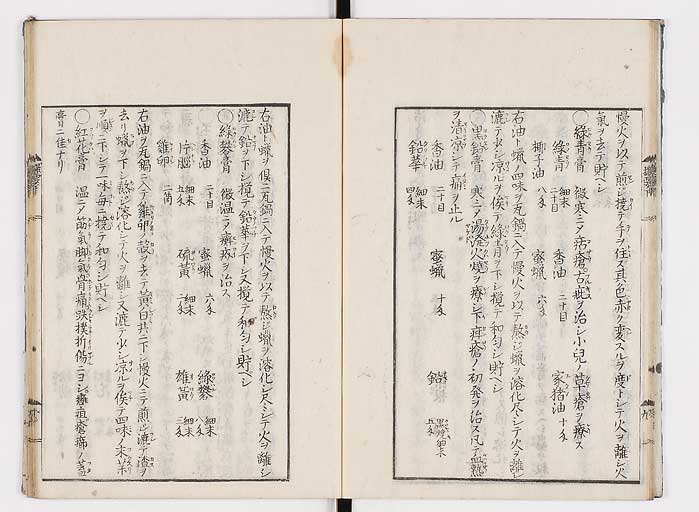 慢火ヲ以テ煎ジ攪テ手ヲ住ズ其色赤ク変スルヲ度トシテ火ヲ離シ火
気ヲ去テ貯ベシ
○緑青膏 微寒ニ〆 瘡古 ヲ治シ小児ノ草瘡ヲ療ス
緑青 細末 二十目 香油 二十目 家猪油 十匁
椰子油 八匁 蜜蝋 六匁
右油ト蝋ノ四味ヲ丸鍋ニ入テ慢火ヲ以テ熬ジ蝋ヲ溶化シ尽シテ火ヲ離シ
漉テ少シ凉ルヲ俟テ緑青ヲ下シ攪テ和匀シ貯ベシ
○黒鉛膏 寒ニ〆湯溌火焼ヲ療シ下疳瘡ノ初発ヲ治ス凡テ血熱
ヲ清凉シテ痛ヲ止ル
香油 二十目 蜜蝋 十匁 鉛 黒焼細末 五匁
鉛華 細末 四匁
右油ト蝋ヲ倶ニ丸鍋ニ入テ慢火ヲ以テ熬ジ蝋ヲ溶化シ尽シテ火ヲ離シ
漉テ鉛ヲ下シ攪テ鉛華ヲ下シ又攪テ和匀シ貯ベシ
○緑礬膏 微温ニ〆癬疥ヲ治ス
香油 二十目 蜜蝋 六匁 緑礬 細末 八匁
片脳 細末 五匁 硫黄 細末 二匁 雄黄 細末 三匁
雞卵 二箇
右油ヲ丸鍋ニ入テ雞卵ノ殻ヲ去テ黄白共ニ下シ慢火ニテ煎ジ漉テ渣ヲ
去リ蝋ヲ下シ熬ジ溶化シテ火ヲ離シ又漉テ少シ凉ルヲ俟テ四味ノ末薬
ヲ順ニ下シテ一味毎ニ攪テ和匀シ貯ベシ
○紅花膏 温ニ〆筋氣脚氣骨痛跌撲折傷ニヨシ 疽瘡瘍ノ蓋
膏ニ佳ナリ